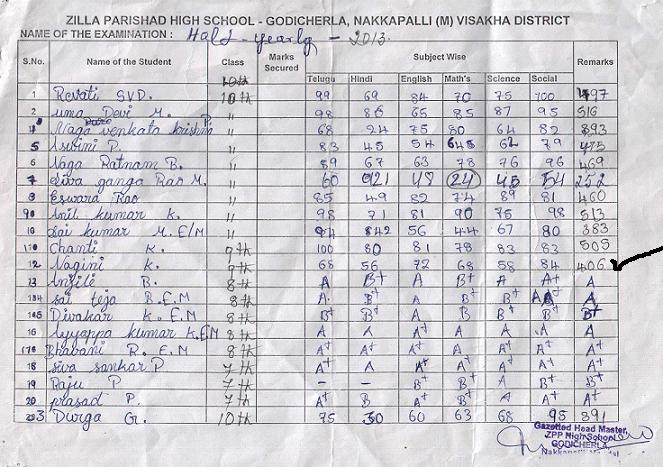 ZILLA PARISHAD HIGH SCHOOL - GODICHERLA, NAKKAPALLI (M) VISAKHA DISTRICT
NAME OF THE EXAMINATION : Half-yearly - 2013.
S.No. Name of the Student Class Marks Secured Subject Wise Remarks
Telugu Hindi English Math's Science Social
10th
1 Revati S.V.D. 10th 99 69 84 70 75 100 497
2 uma Devi M. " 98 86 65 85 87 95 516
Naga venkata krishna P. " 68 24 75 80 64 82 393
5 Asvini P. " 83 45 54 62 79
6 Naga Ratnam B. " 89 67 63 78 76 96 469
7 Siva ganga Rao M. " 60 48 24 45 54 252
Eswara Rao " 85 49 82 74 89 81 460
Anil kumar K. " 98 71 81 90 75 98 513
10 Sai kumar M. E/M " 56 44 67 80 383
Chanti K. 9th 100 80 81 78 83 83 505
12 Nagini K. 9th 68 56 72 68 58 84 406
13 B. 8th A B+ A B+ A A+ A
sai teja B.E.M 8th A B+ A B+ B+ A
Divakar K. E.M 8th B+ B+ A B+ B+ B+
Ayyappa kumar K.E.M 8th A A A+ A A A A
Bhavani R. E.M 8th A+ A+ A A+ A+ A+ A+
18 Siva sankar P 7th A+ A A+ A+ A+ A+ A+
19 Raju P 7th - - B+ B+ A B+ B+
20 prasad P. 7th A B A A+ A A+ A+
Durga G. 10th 75 30 60 63 68 95 391
Gazetted Head Master,
ZPP High School
GODICHERLA,
Nakkapalli Mandal